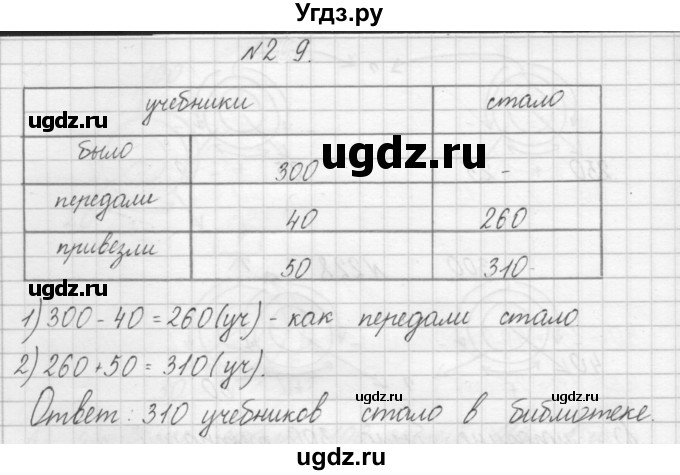 Угдз.ру
№2 9.
учебники стало
ugdz.ru
было 300 -
ugdz.ru
передали 40 260
привезли 50 310
ugdz.ru
1) 300 - 40 = 260 (уч) - как передали стало
2) 260 + 50 = 310 (уч).
ugdz.ru
ugdz.ru
Ответ: 310 учебников стало в библиотеке.
ugdz.ru